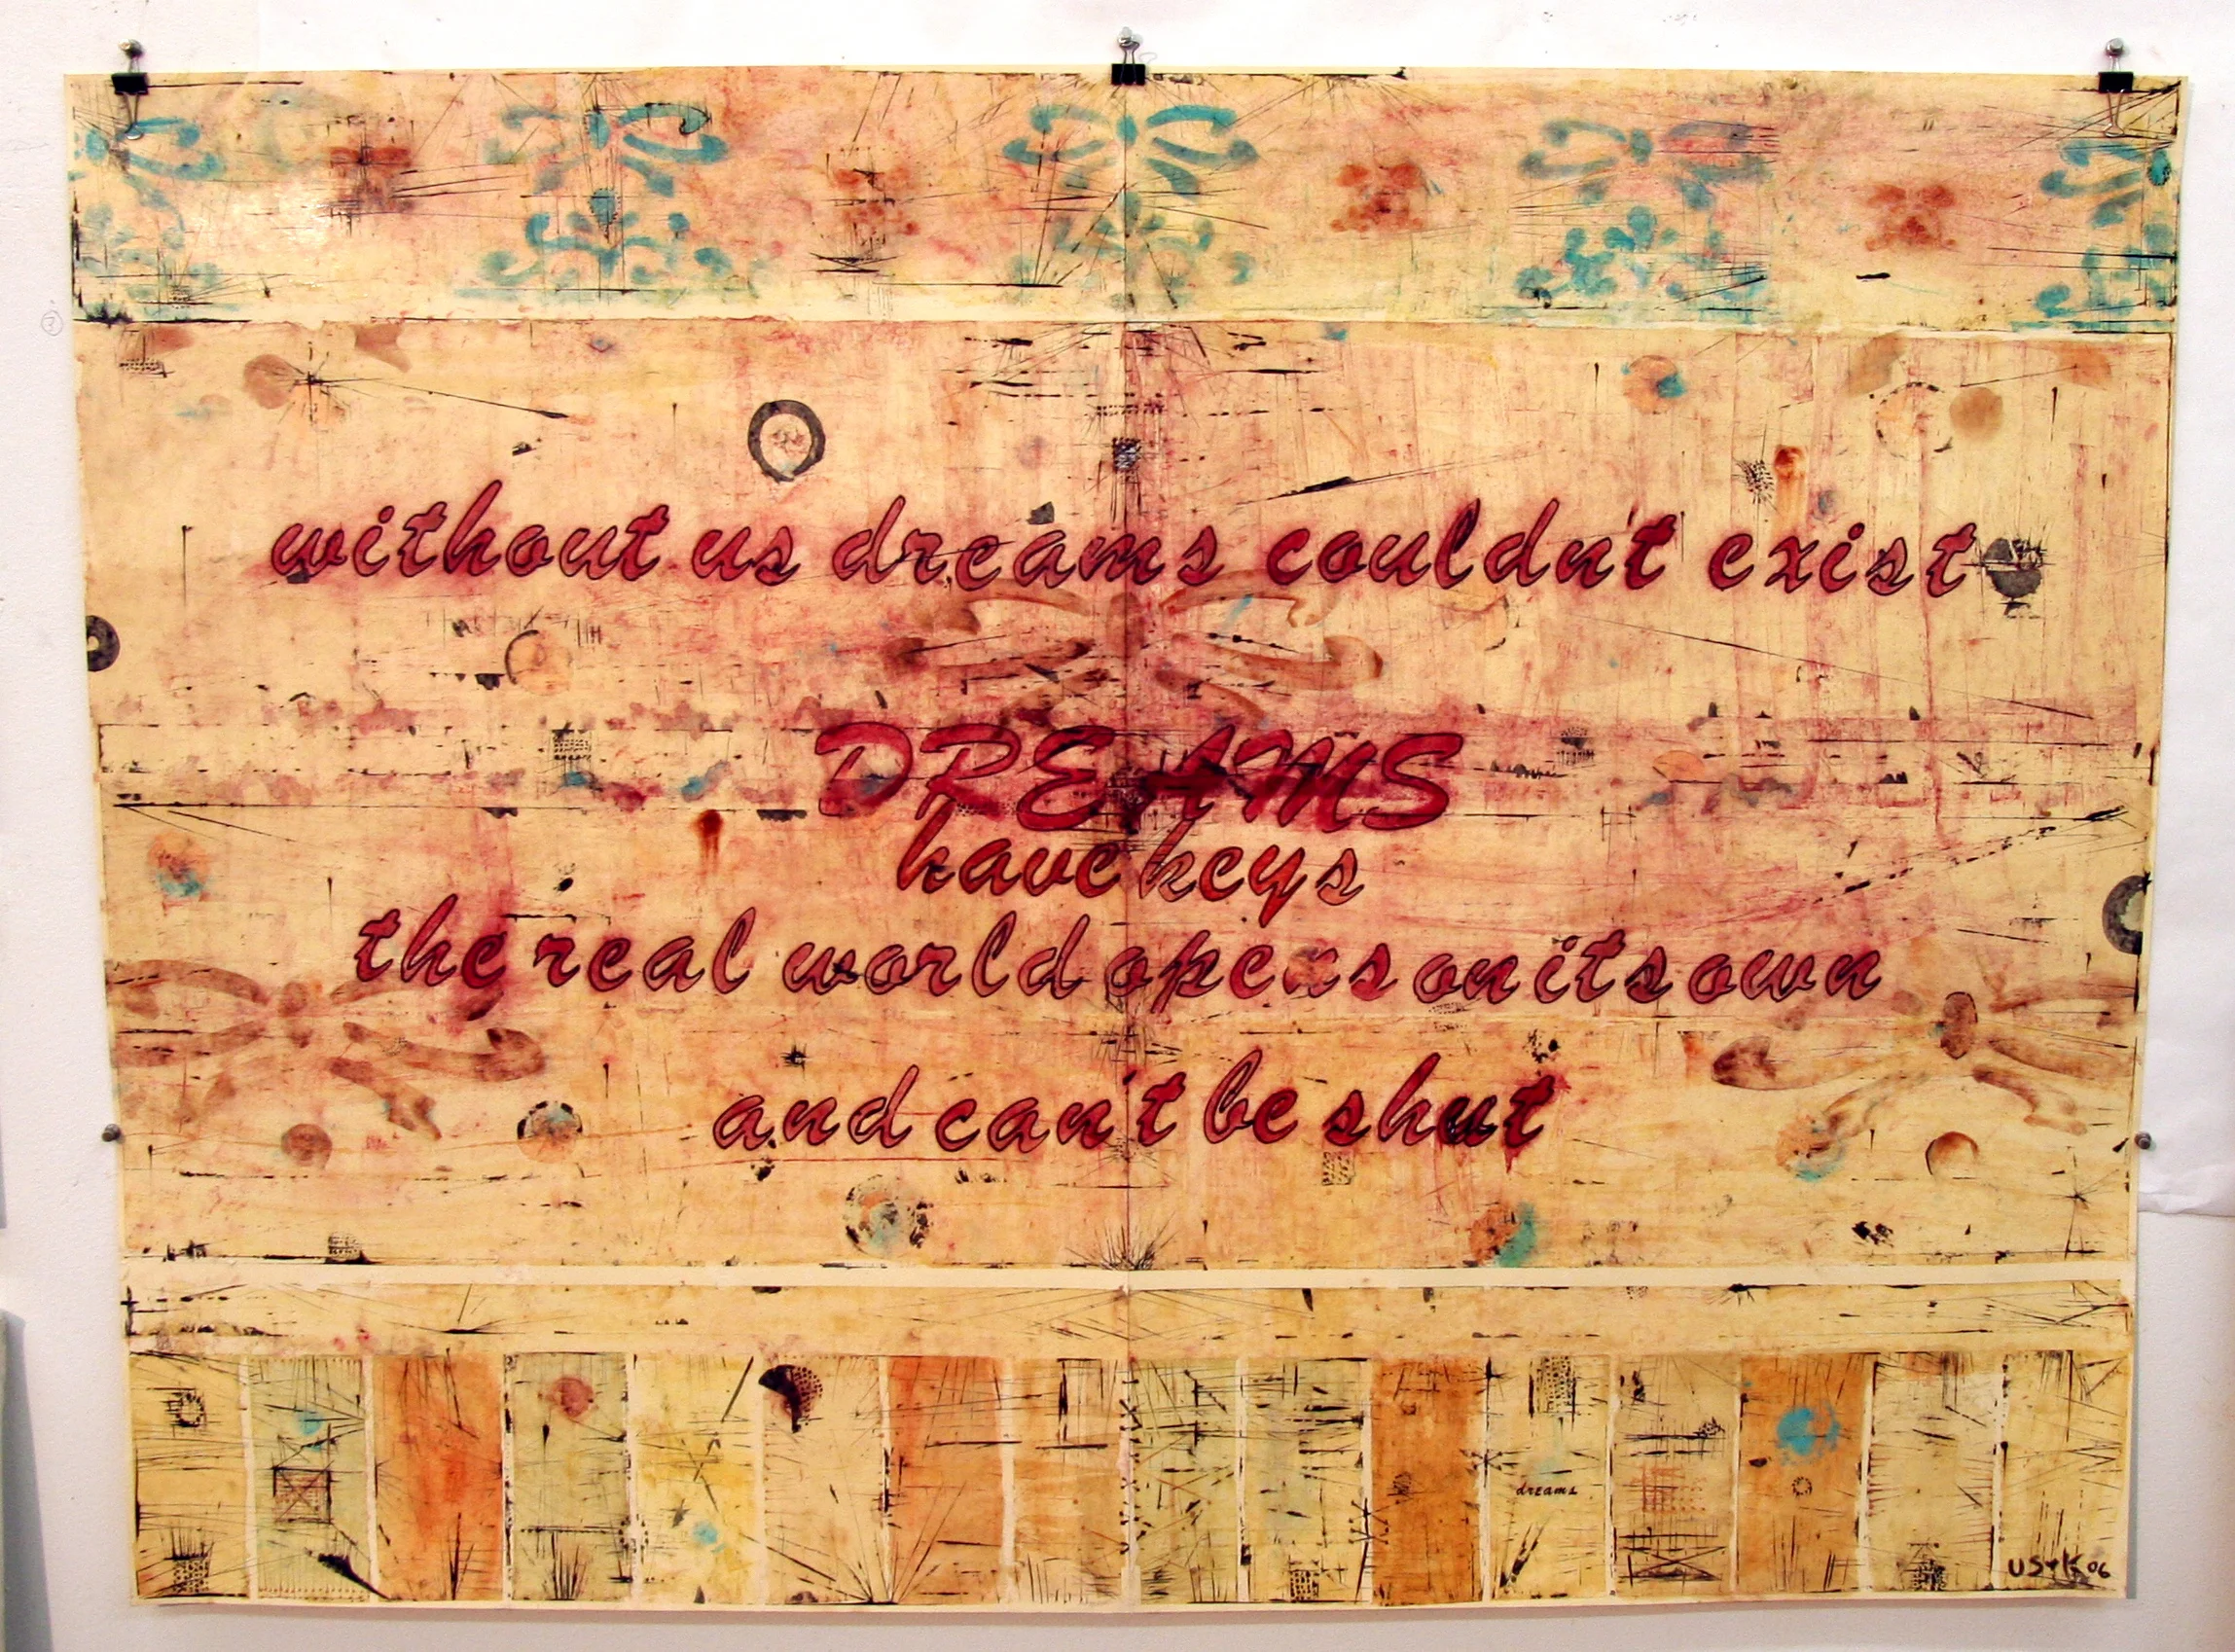 without us dreams couldn't exist
DREAMS
have keys
the real world opens on its own
and can't be shut
dreams
USYK 06